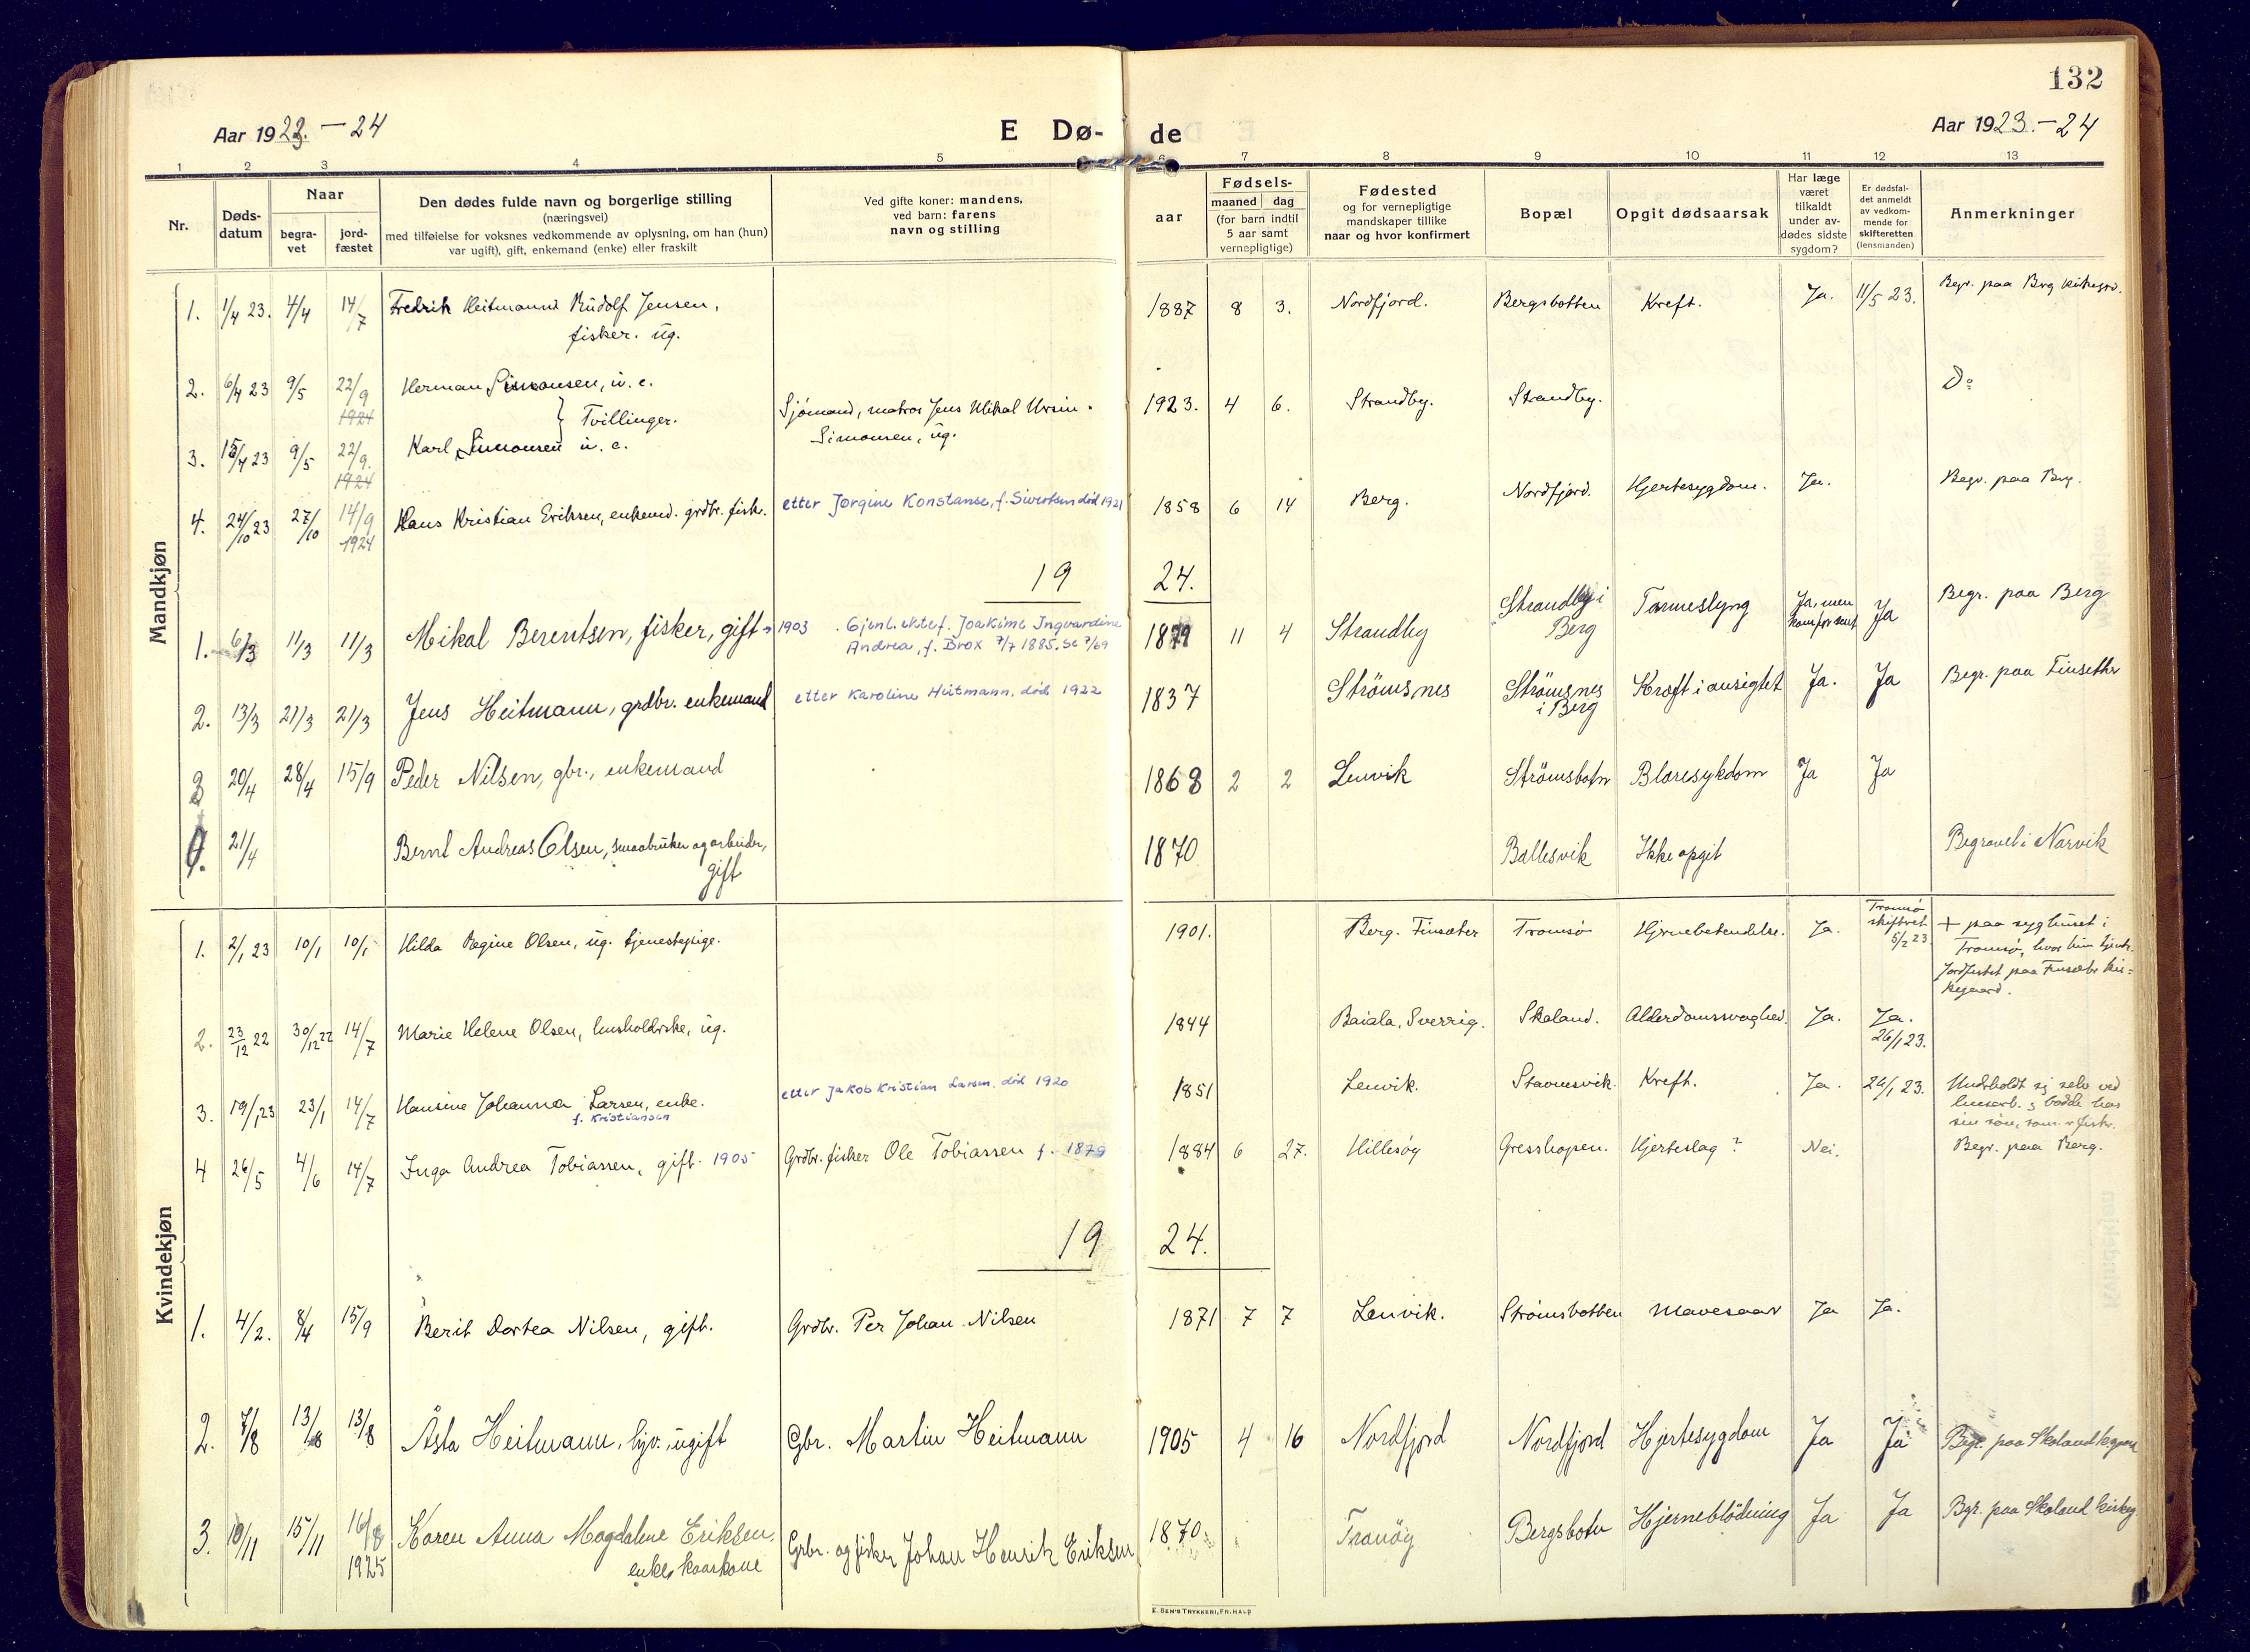 132
Aar 1923. – 24
E Dø-
de
Aar 1923. – 24
1 2 3 4 5 6 7 8 9 10 11 12 13
Nr.
Døds-
datum
Naar
begra-
vet
jord-
fæstet
Den dødes fulde navn og borgerlige stilling
(næringsvei)
med tilføielse for voksnes vedkommende av oplysning, om han (hun)
var ugift), gift, enkemand (enke) eller fraskilt
Ved gifte koner: mandens,
ved barn: farens
navn og stilling
aar
Fødsels-
maaned dag
(for barn indtil
5 aar samt
vernepligtige)
Fødested
og for vernepligtige
mandskaper tillike
naar og hvor konfirmert
Bopæl
Opgit dødsaarsak
Har læge
været
tilkaldt
under av-
dødes sidste
sygdom?
Er dødsfal-
det anmeldt
av vedkom-
mende for
skifteretten
(lensmanden)
Anmerkninger
Mandkjøn
1. 1/4 23. 4/4 14/7 Fredrik Heitmann Rudolf Jensen, 1887 8 3. Nordfjord. Bergsbotten Kreft. Ja. 11/5 23. Begr. paa Brg
fisker. ug.
2. 6/4 23 9/5 22/9 Herman Simonsen, u. e. 1923. 4 6. Strandby. Strandby. Do
1924
} Tvillinger. Sjömand, matros Jens Mikal Ursin
Simonsen, ug.
3. 15/4 23 9/5 22/9. Karl Simonsen u. e.
1924
4. 24/10 23 27/10 14/9 Hans Kristian Eriksen, enkemd. grdbr. fisk. etter Jørgine Konstanse, f. Sivertsen død 1921 1858 6 14 Berg. Nordfjord. Hjertesygdom. Ja. Begr. paa Brg.
1924
19 24.
1. 6/3 11/3 11/3 Mikal Berentsen, fisker, gift 1903 Gjenl. ektef. Joakime Ingvardine 1879 11 4 Strandby Strandby i Tarmeslyng Ja, men Ja Begr. paa Berg
Andrea, f. Brox 7/7 1885. Se 7/69 Berg kom for sent
2. 13/3 21/3 21/3 Jens Heitmann, grdbr. enkemand etter Karoline Heitmann, død 1922 1837 Strömsnes Strömsnes Kræft i ansigtet Ja. Ja Begr. paa Finsethr
i Berg
3 20/4 28/4 15/9 Peder Nilsen, gbr., enkemand 1868 2 2 Lenvik Strömsbotn Blæresykdom Ja Ja
0. 21/4 Bernt Andreas Olsen, smaabruker og arbeider, 1870 Ballesvik Ikke opgit Begravet i Narvik
gift
Kvindekjøn
1. 2/1 23 10/1 10/1 Hilda Regine Olsen, ug. tjenestepige. 1901. Berg. Finsæter Tromsø Hjernebetendelse. Ja. Tromsø
skifteret
5/2 23
+ paa syghuset i
Tromsø, hvor hun tjente.
Jordfestet paa Finsæter kir=
kegaard.
2. 23/12 22 30/12 22 14/7 Marie Helene Olsen, husholderske, ug. 1844 Baiala, Sverrig. Skaland. Alderdomssvaghed. Ja. Ja.
26/1 23.
3. 19/1 23 23/1 14/7 Hansine Johanna Larsen, enke. etter Jakob Kristian Larsen, død 1920 1851 Lenvik. Stavnesvik. Kreft. Ja. 24/1 23.
f. Kristiansen
Undeholdt sig selv ved
husarb. & bodde hos
sin søn, som er fisker.
4 26/5 4/6 14/7 Inga Andrea Tobiassen, gift. 1905 Grdbr. fisker Ole Tobiassen f. 1879 1884 6 27. Hillesøy Gresshopen. Hjerteslag? Nei. Begr. paa Berg.
19 24.
1. 4/2. 8/4 15/9 Berit Dortea Nilsen, gift. Grdbr. Per Johan Nilsen 1871 7 7 Lenvik. Strömsbotten Mavesaar Ja Ja.
2. 7/8 13/8 13/8 Åsta Heitmann, hjv., ugift Gbr. Martin Heitmann 1905 4 16 Nordfjord Nordfjord Hjertesygdom Ja Ja Begr. paa Skaland
3. 10/11 15/11 16/8 Karen Anna Magdalene Eriksen, Grbr. og fisker Johan Henrik Eriksen 1870 Tranöy Bergsbotn Hjerneblödning Ja Ja Begr. paa Skaland kirkeg.
1925 enke, kaarkone
E. SEM'S TRYKKERI, FR.HALD